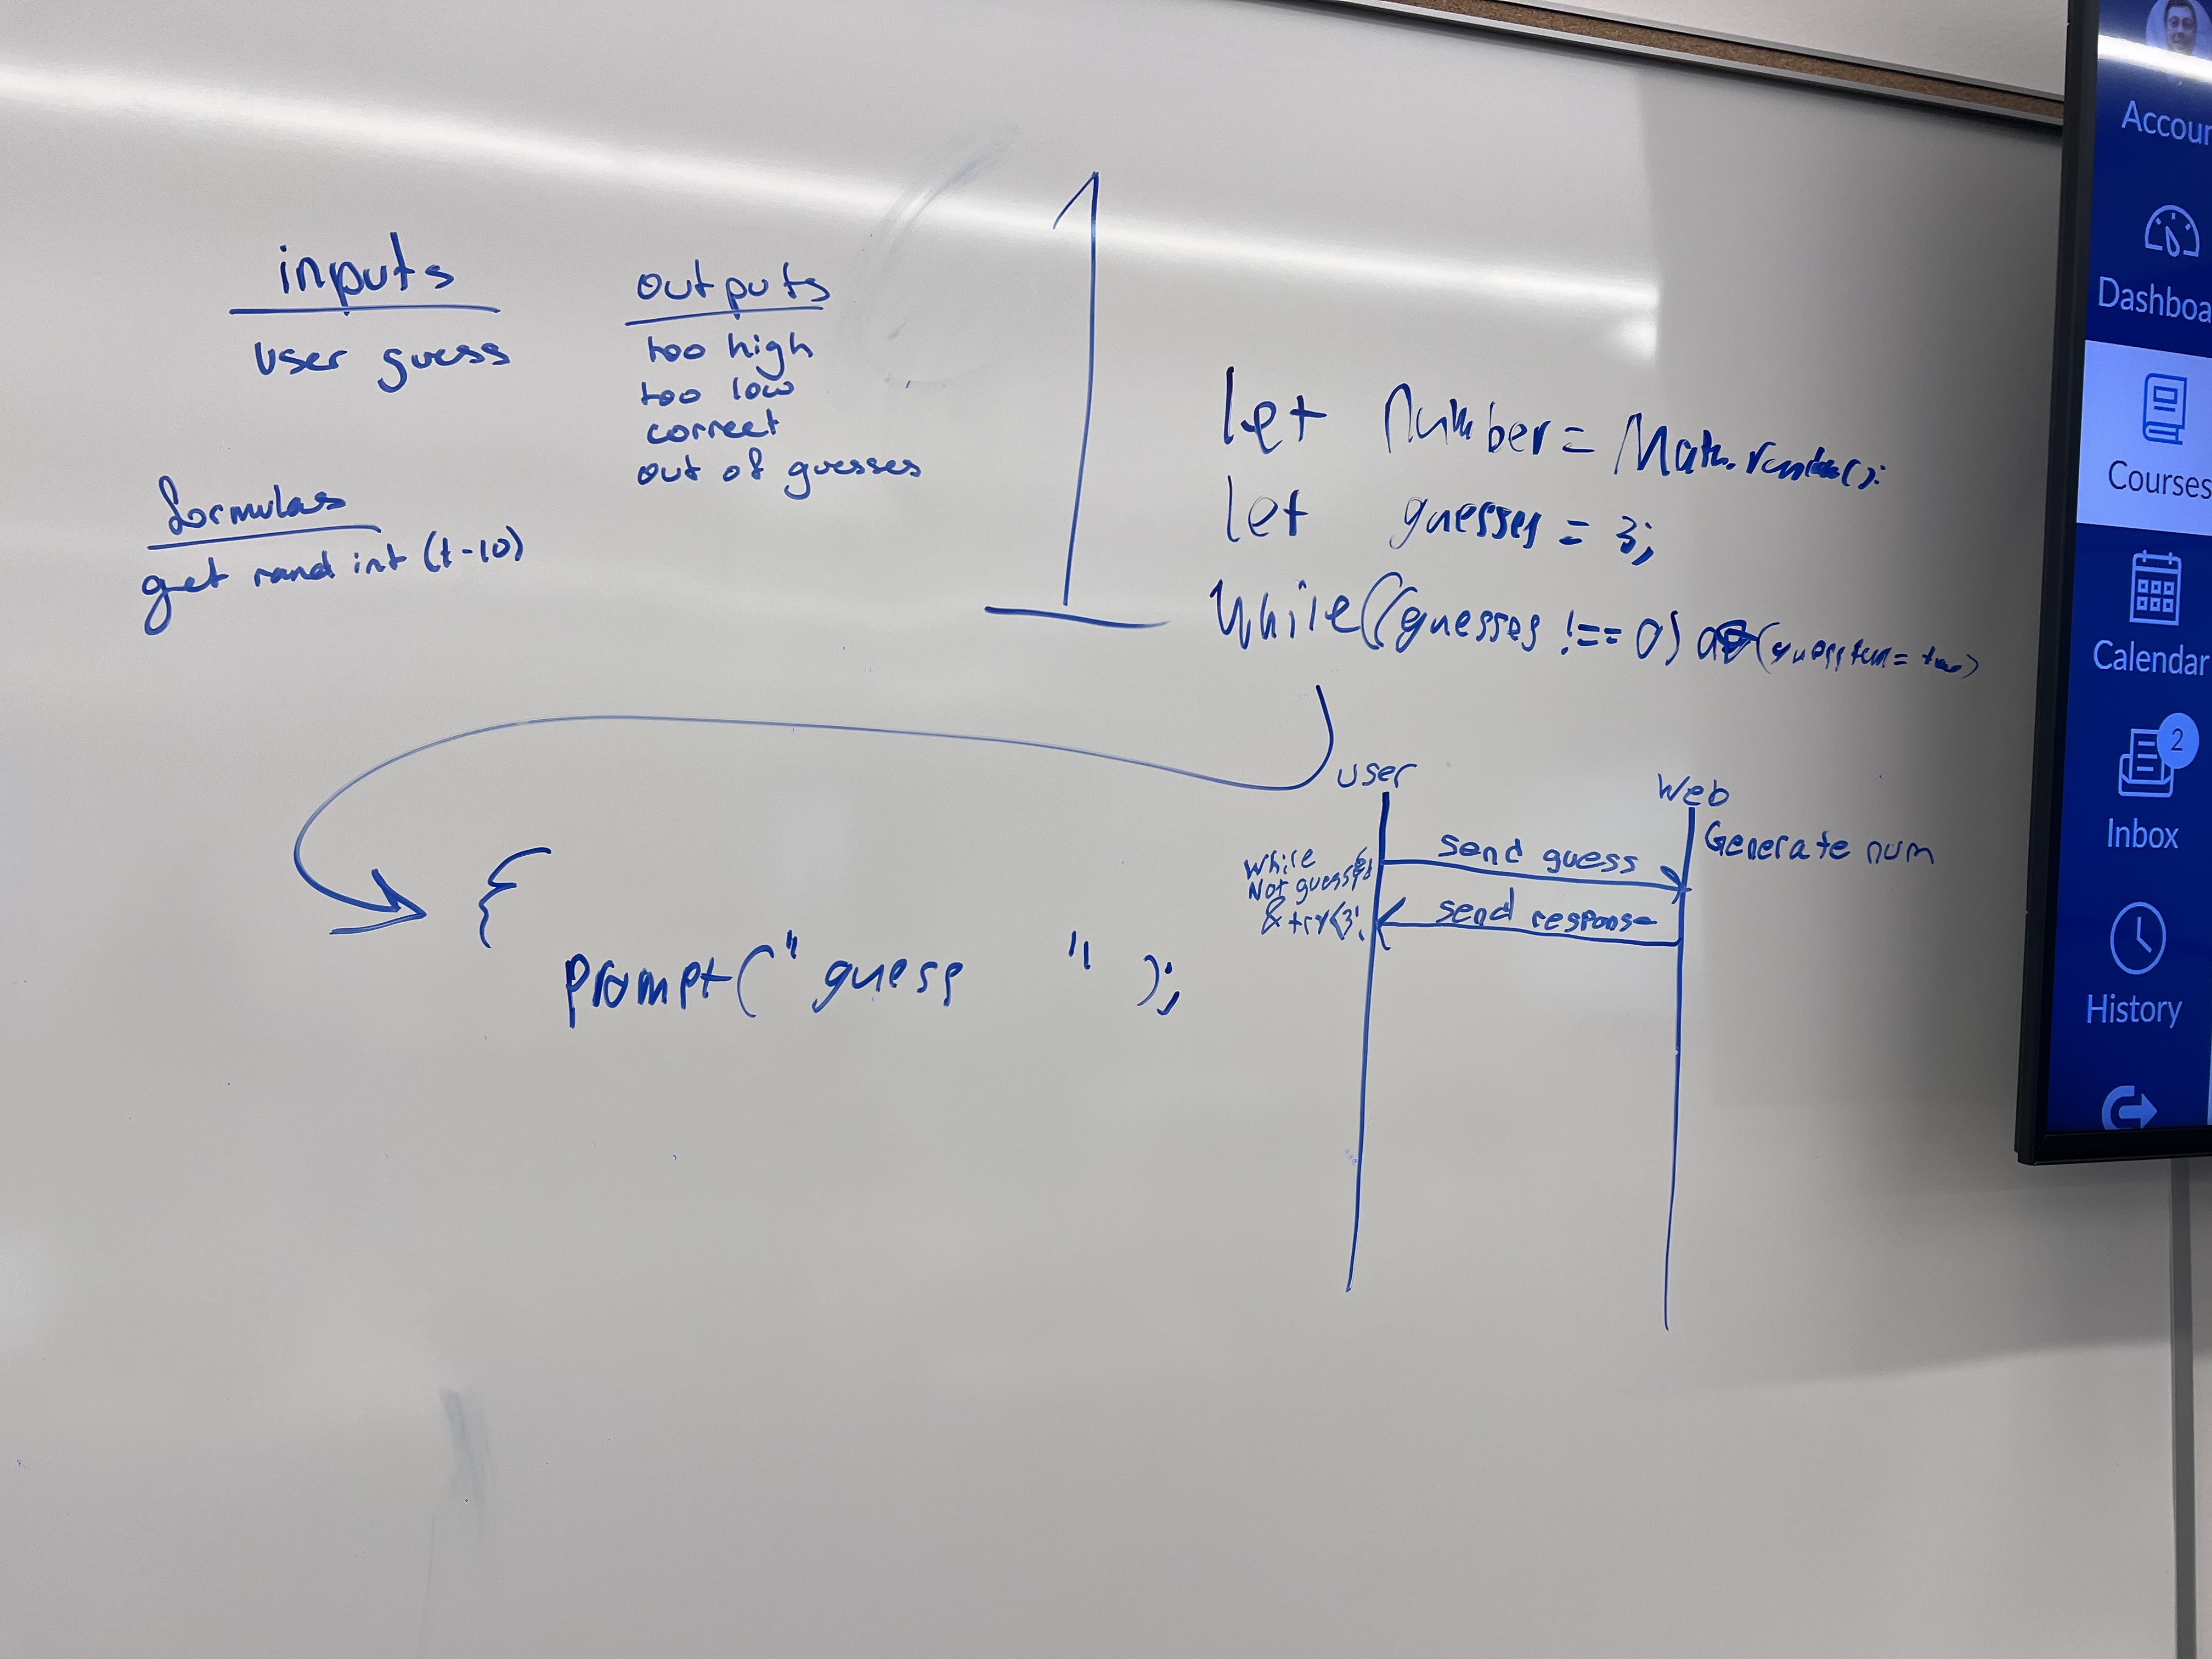 inputs
user guess
outputs
too high
too low
correct
out of guesses
formulas
get rand int (1-10)
let number = Math.random();
let guesses = 3;
while((guesses !== 0)
{
prompt(" guess " );
user
Web
Generate num
while
Not guessed
& try<3:
send guess
send response
Accoun
Dashboa
Courses
Calendar
2
Inbox
History